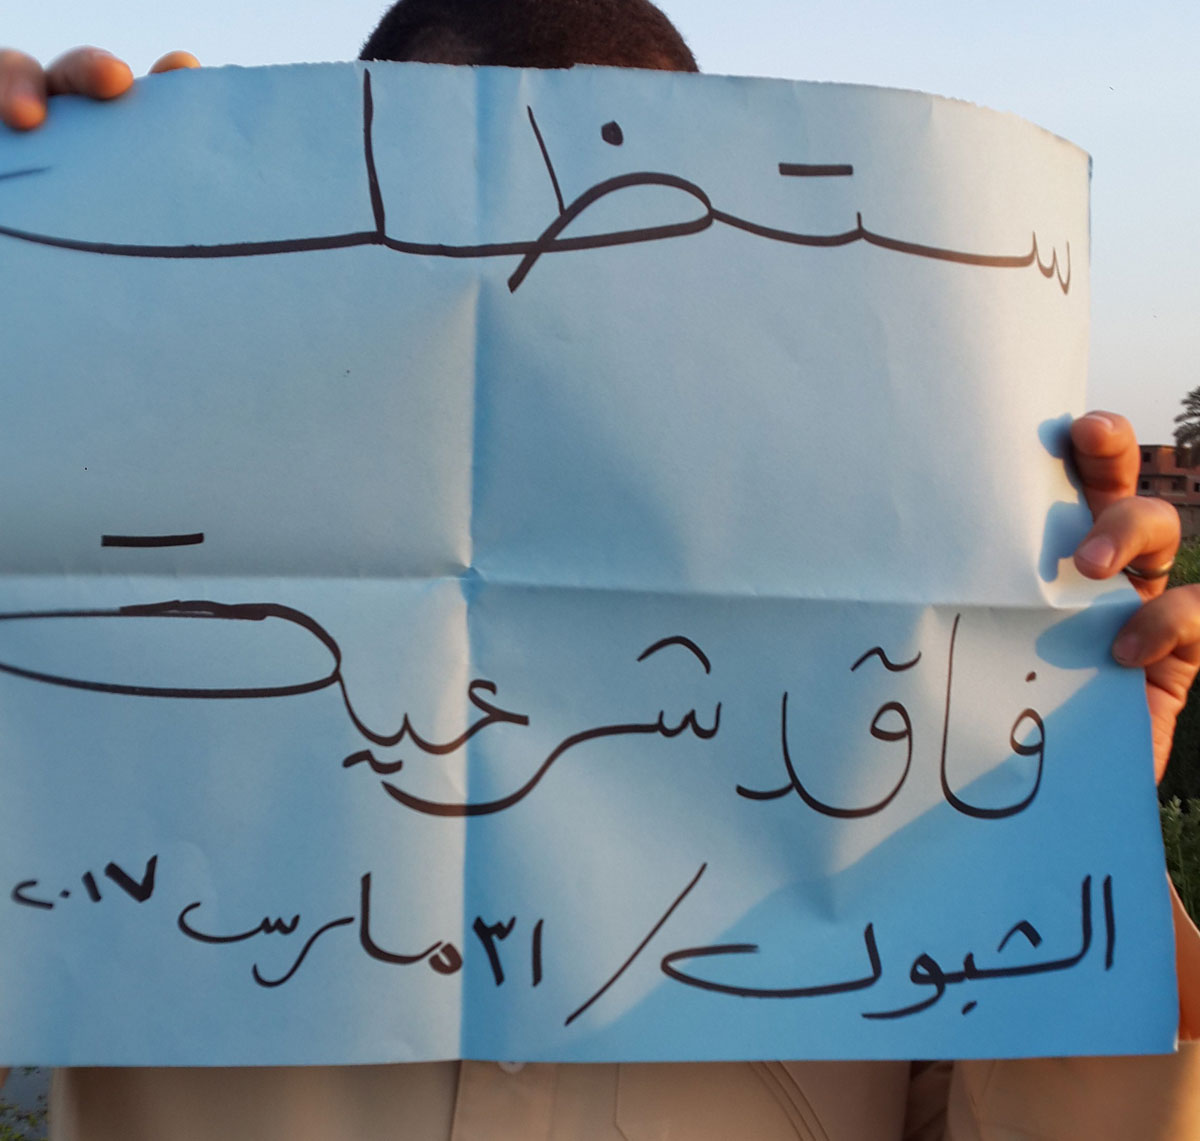 ستظل
فاقد شرعية
الشبول / ٣١ مارس ٢٠١٧